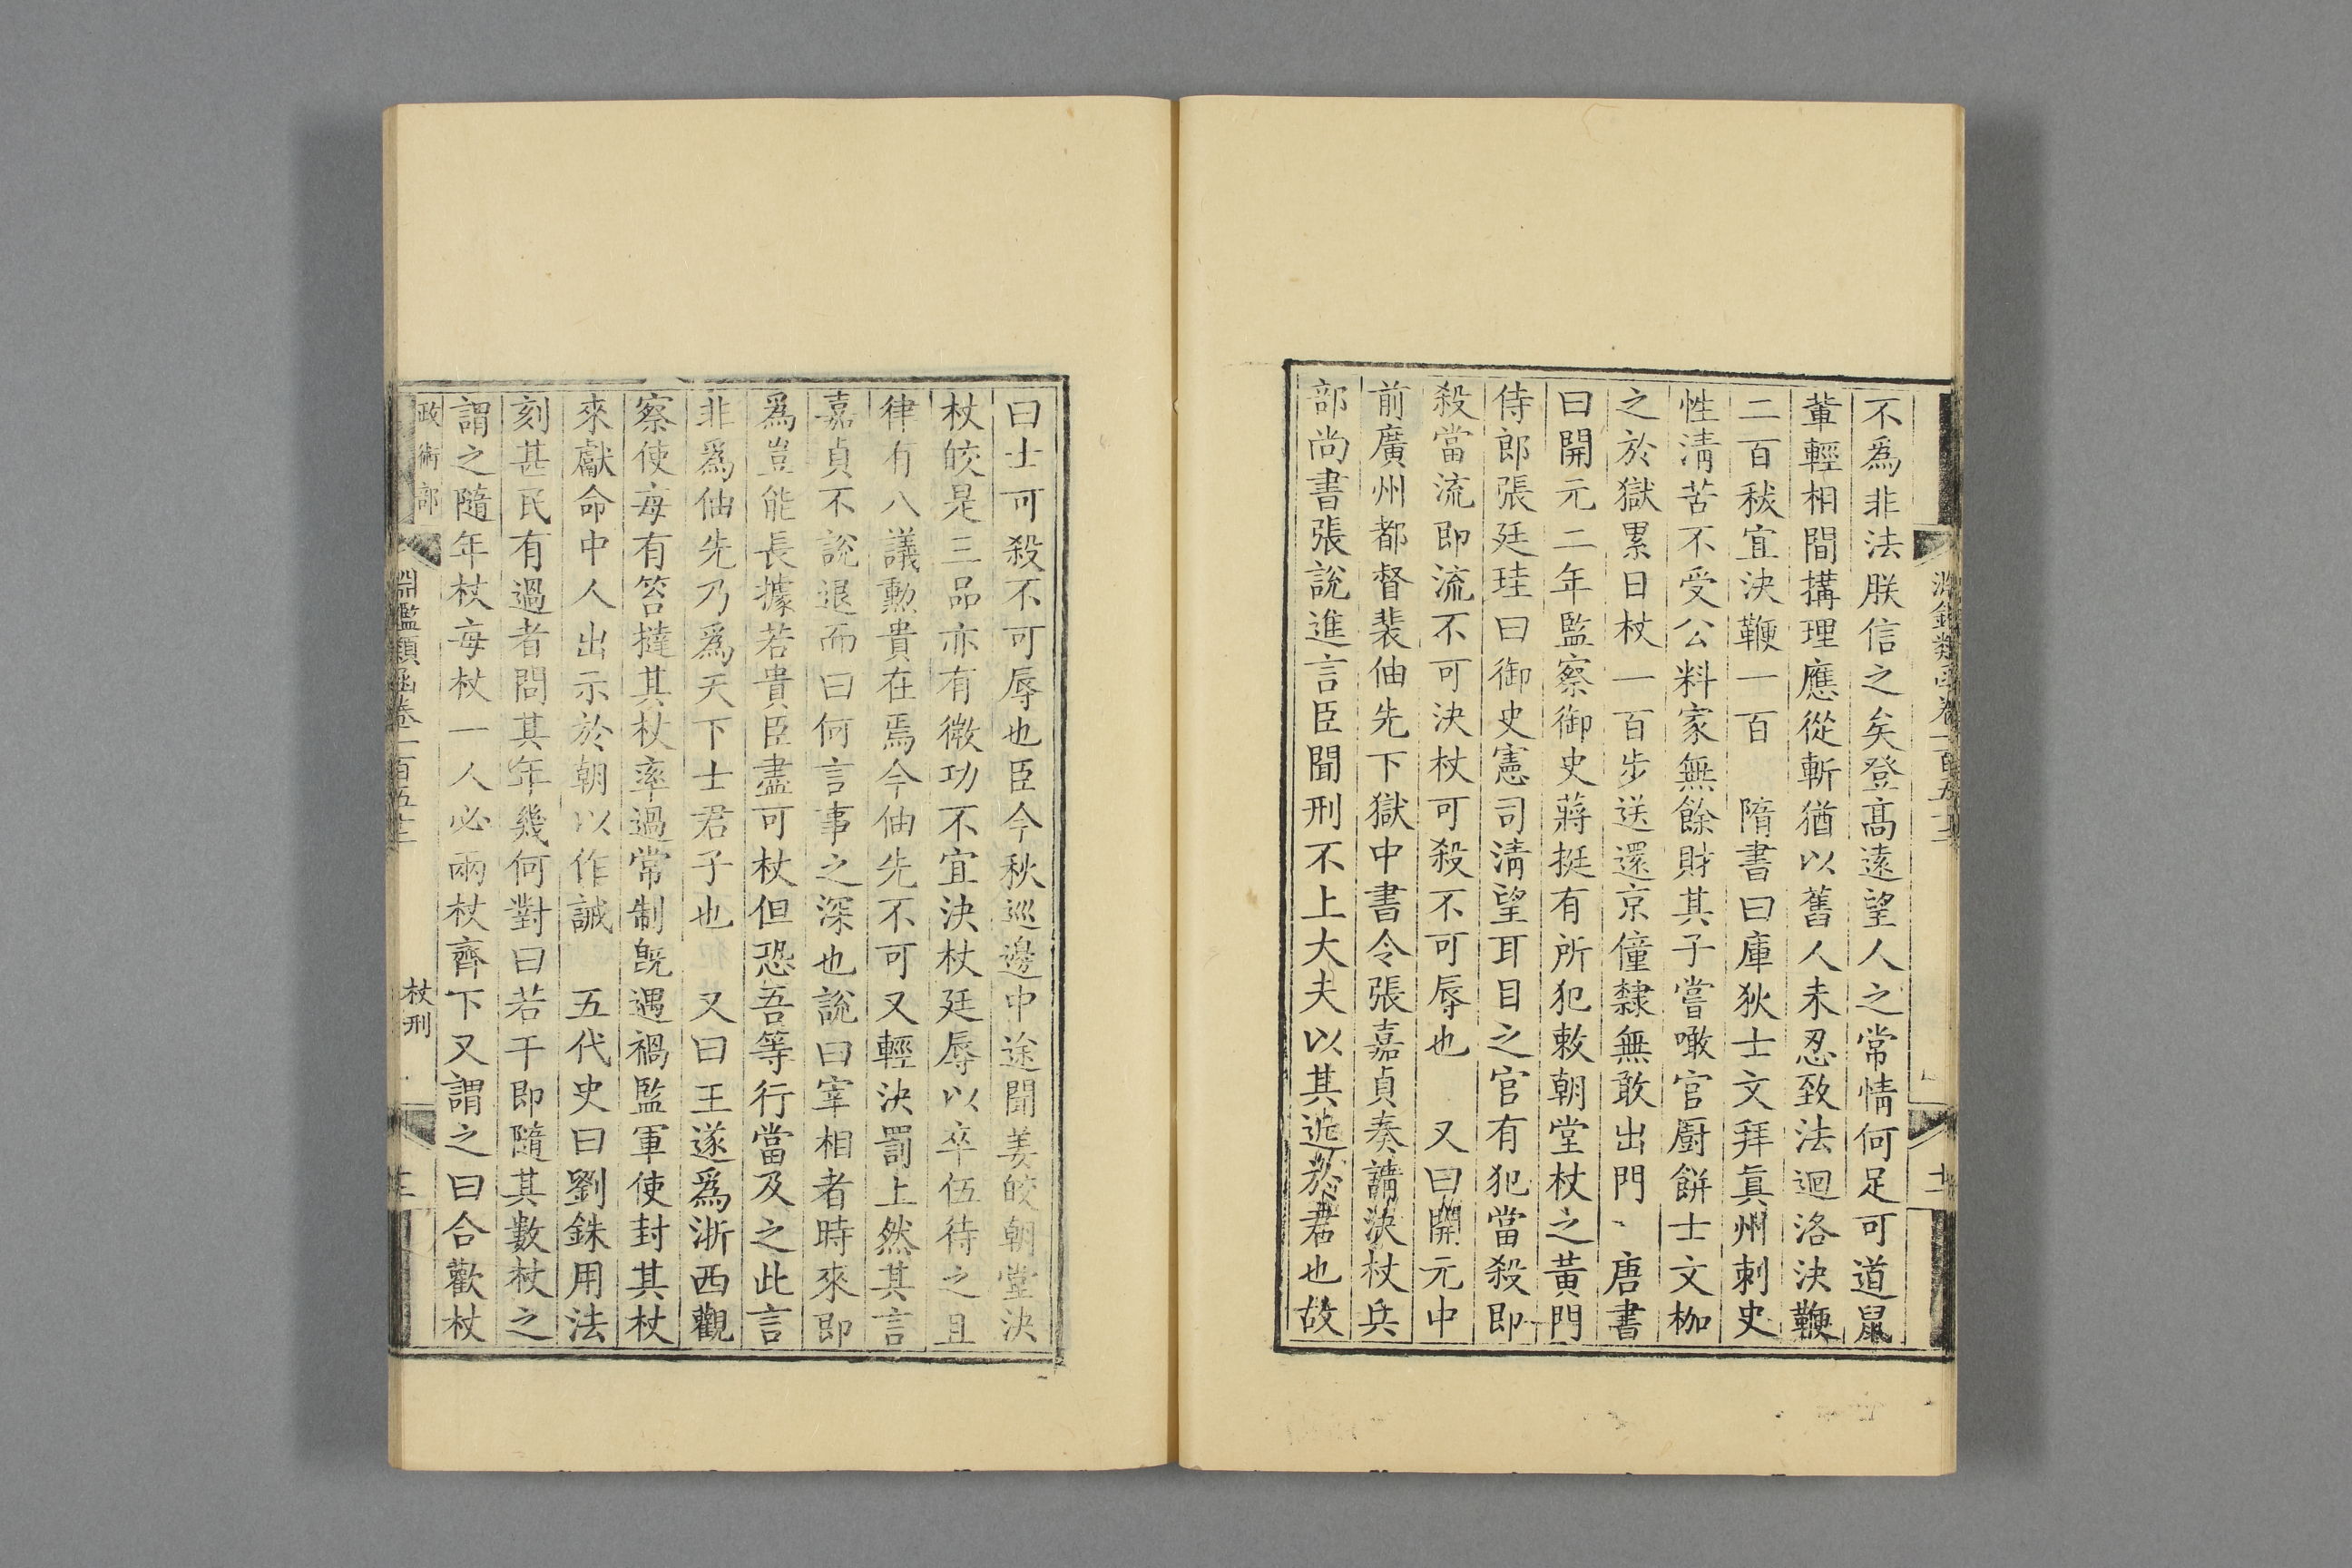 不爲非法朕信之矣登高遠望人之常情何足可道鼠
輩輕相間搆理應從斬猶以舊人未忍致法迴洛決鞭
二百秡宜決鞭一百　隋書曰庫狄士文拜貝州刺史
性淸苦不受公料家無餘財其子嘗噉官廚餅士文枷
之於獄累日杖一百步送還京僮隸無敢出門　唐書
曰開元二年監察御史蔣挺有所犯敕朝堂杖之黃門
侍郎張廷珪曰御史憲司淸望耳目之官有犯當殺即
殺當流即流不可決杖可殺不可辱也　又曰開元中
前廣州都督裴伷先下獄中書令張嘉貞奏請決杖兵
部尚書張說進言臣聞刑不上大夫以其近於君也故
曰士可殺不可辱也臣今秋巡邊中途聞姜皎朝堂決
杖皎是三品亦有微功不宜決杖廷辱以卒伍待之且
律有八議勳貴在焉今伷先不可又輕決罰上然其言
嘉貞不說退而曰何言事之深也說曰宰相者時來即
爲豈能長據若貴臣盡可杖但恐吾等行當及之此言
非爲伷先乃爲天下士君子也　又曰王遂爲浙西觀
察使每有笞撻其杖率過常制旣遇禍監軍使封其杖
來獻命中人出示於朝以作誡　五代史曰劉銖用法
刻甚民有過者問其年幾何對曰若干即隨其數杖之
謂之隨年杖每杖一人必兩杖齊下又謂之曰合歡杖
政術部
淵鑑類函卷一百五十三
杖刑